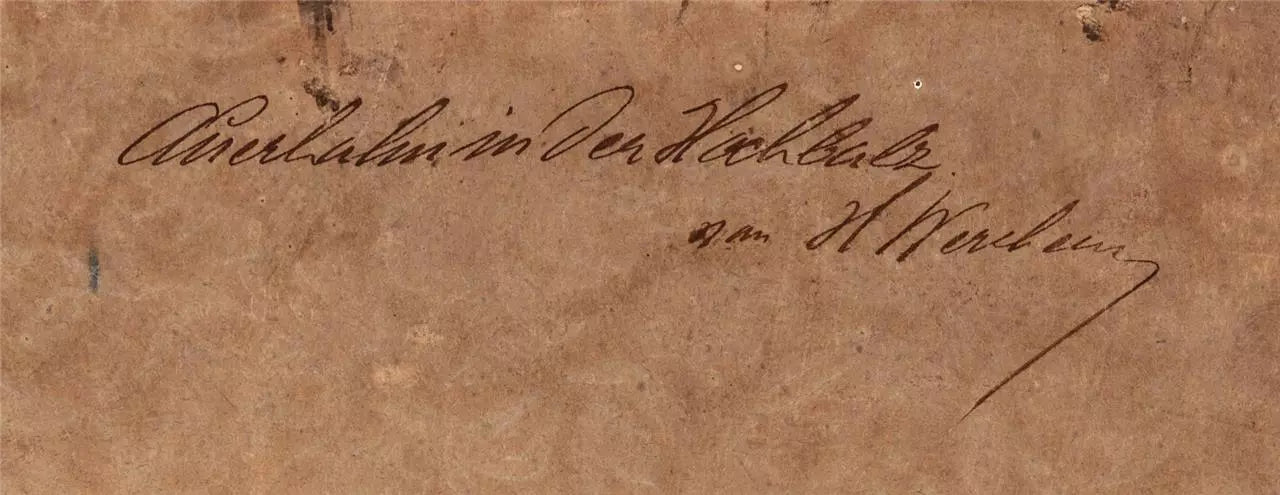 Auerhahn in der Hochbalz
von H